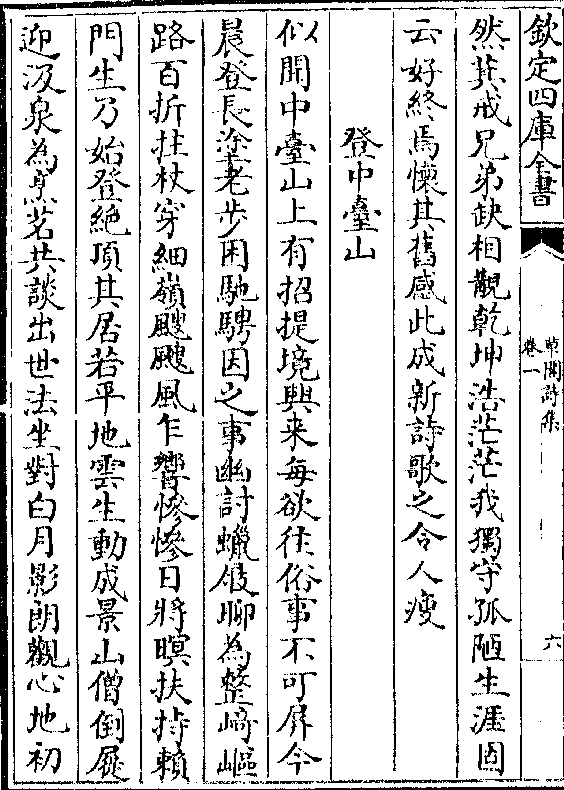 欽定四庫全書
東閣詩集
卷一
六
然箕戒兄弟缺相觀乾坤浩茫茫我獨守孤陋生涯固
云好終焉懷其舊感此成新詩歌之令人瘦
登中臺山
似聞中臺山上有招提境興来每欲往俗事不可屏今
晨登長途老步困馳騁因之事幽討蠟屐聊為整﨑嶇
路百折拄杖穿細嶺颼颼風乍響慘慘日將暝扶持賴
門生乃始登絶頂其居若平地雲生動成景山僧倒屣
迎汲泉為烹茗共談出世法坐對白月影朗觀心地初